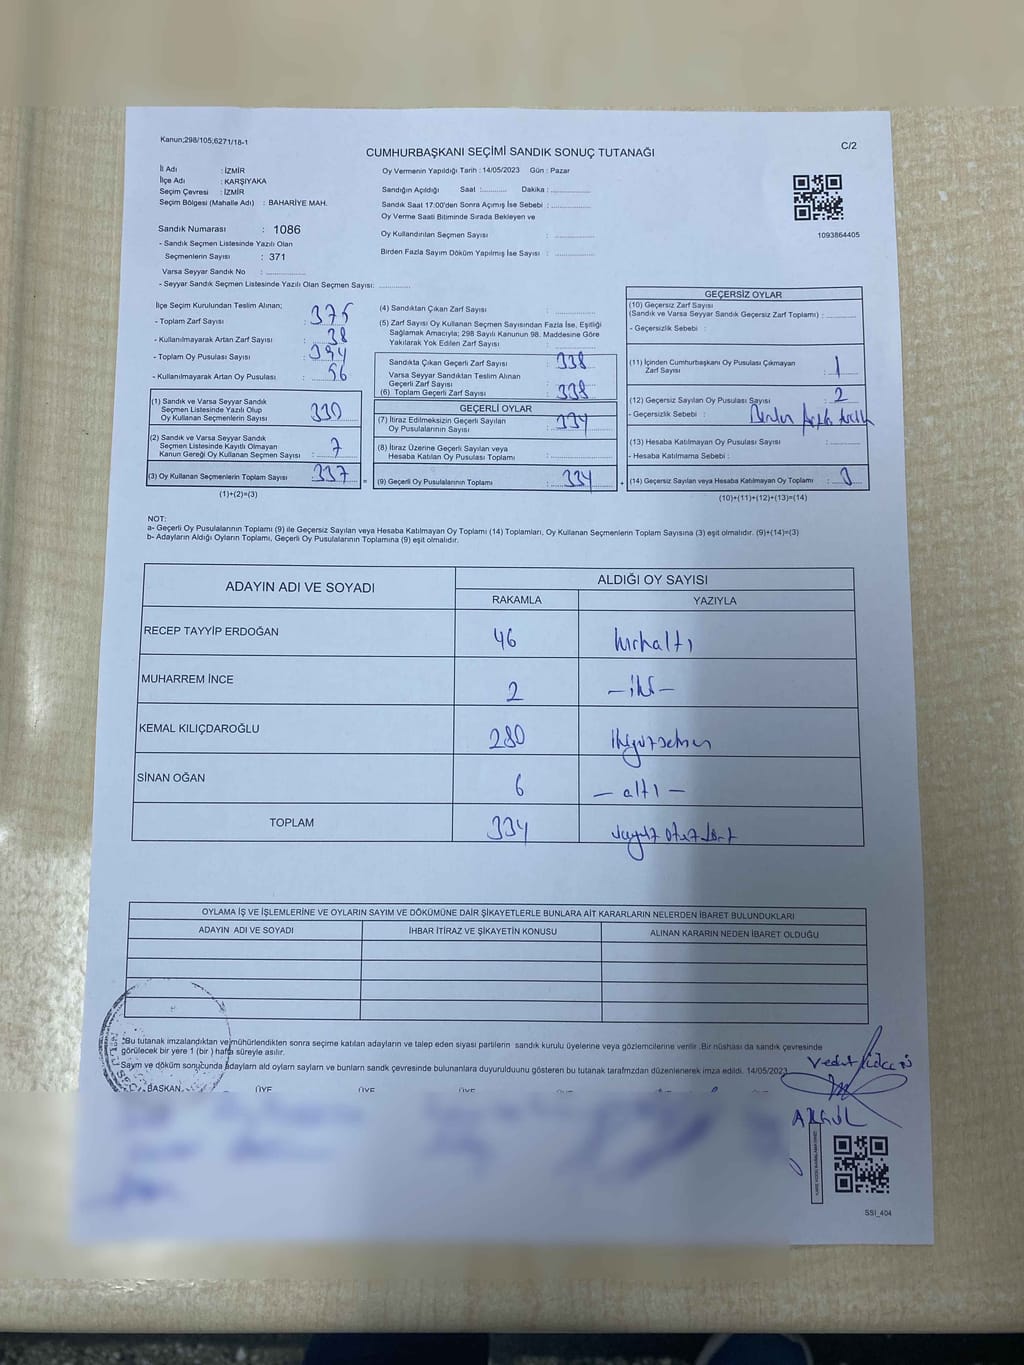 Kanun;298/105;6271/18-1
C/2
CUMHURBAŞKANI SEÇİMİ SANDIK SONUÇ TUTANAĞI
İl Adı : İZMİR
İlçe Adı : KARŞIYAKA
Seçim Çevresi : İZMİR
Seçim Bölgesi (Mahalle Adı) : BAHARİYE MAH.
Oy Vermenin Yapıldığı Tarih : 14/05/2023 Gün : Pazar
Sandığın Açıldığı Saat :.......... Dakika :..............
Sandık Saat 17:00'den Sonra Açımış İse Sebebi :..............
Oy Verme Saati Bitiminde Sırada Bekleyen ve
Oy Kullandırılan Seçmen Sayısı : ..............
Birden Fazla Sayım Döküm Yapılmış İse Sayısı : ..............
1093864405
Sandık Numarası : 1086
- Sandık Seçmen Listesinde Yazılı Olan
Seçmenlerin Sayısı : 371
Varsa Seyyar Sandık No : ..............
- Seyyar Sandık Seçmen Listesinde Yazılı Olan Seçmen Sayısı: ..............
İlçe Seçim Kurulundan Teslim Alınan;
- Toplam Zarf Sayısı : 375
- Kullanılmayarak Artan Zarf Sayısı : 38
- Toplam Oy Pusulası Sayısı : 394
- Kullanılmayarak Artan Oy Pusulası : 56
(1) Sandık ve Varsa Seyyar Sandık
Seçmen Listesinde Yazılı Olup
Oy Kullanan Seçmenlerin Sayısı : 330
(2) Sandık ve Varsa Seyyar Sandık
Seçmen Listesinde Kayıtlı Olmayan
Kanun Gereği Oy Kullanan Seçmen Sayısı : 7
(3) Oy Kullanan Seçmenlerin Toplam Sayısı : 337
(1)+(2)=(3)
(4) Sandıktan Çıkan Zarf Sayısı : ..............
(5) Zarf Sayısı Oy Kullanan Seçmen Sayısından Fazla İse, Eşitliği
Sağlamak Amacıyla; 298 Sayılı Kanunun 98. Maddesine Göre
Yakılarak Yok Edilen Zarf Sayısı : ..............
Sandıkta Çıkan Geçerli Zarf Sayısı : 338
Varsa Seyyar Sandıktan Teslim Alınan
Geçerli Zarf Sayısı :
(6) Toplam Geçerli Zarf Sayısı : 338
GEÇERLİ OYLAR
(7) İtiraz Edilmeksizin Geçerli Sayılan
Oy Pusulalarının Sayısı : 334
(8) İtiraz Üzerine Geçerli Sayılan veya
Hesaba Katılan Oy Pusulası Toplamı : ..............
= (9) Geçerli Oy Pusulalarının Toplamı : 334
GEÇERSİZ OYLAR
(10) Geçersiz Zarf Sayısı
(Sandık ve Varsa Seyyar Sandık Geçersiz Zarf Toplamı) : ..........
- Geçersizlik Sebebi :
(11) İçinden Cumhurbaşkanı Oy Pusulası Çıkmayan
Zarf Sayısı : 1
(12) Geçersiz Sayılan Oy Pusulası Sayısı : 2
- Geçersizlik Sebebi :
(13) Hesaba Katılmayan Oy Pusulası Sayısı : ..........
- Hesaba Katılmama Sebebi :
+ (14) Geçersiz Sayılan veya Hesaba Katılmayan Oy Toplamı : 3
(10)+(11)+(12)+(13)=(14)
NOT:
a- Geçerli Oy Pusulalarının Toplamı (9) ile Geçersiz Sayılan veya Hesaba Katılmayan Oy Toplamı (14) Toplamları, Oy Kullanan Seçmenlerin Toplam Sayısına (3) eşit olmalıdır. (9)+(14)=(3)
b- Adayların Aldığı Oyların Toplamı, Geçerli Oy Pusulalarının Toplamına (9) eşit olmalıdır.
ADAYIN ADI VE SOYADI ALDIĞI OY SAYISI
RAKAMLA YAZIYLA
RECEP TAYYİP ERDOĞAN 46 kırkaltı
MUHARREM İNCE 2 - iki -
KEMAL KILIÇDAROĞLU 280 ikiyüzseksen
SİNAN OĞAN 6 - altı -
TOPLAM 334 üçyüz otuz dört
OYLAMA İŞ VE İŞLEMLERİNE VE OYLARIN SAYIM VE DÖKÜMÜNE DAİR ŞİKAYETLERLE BUNLARA AİT KARARLARIN NELERDEN İBARET BULUNDUKLARI
ADAYIN ADI VE SOYADI İHBAR İTİRAZ VE ŞİKAYETİN KONUSU ALINAN KARARIN NEDEN İBARET OLDUĞU
*Bu tutanak imzalandıktan ve mühürlendikten sonra seçime katılan adayların ve talep eden siyasi partilerin sandık kurulu üyelerine veya gözlemcilerine verilir .Bir nüshası da sandık çevresinde
görülecek bir yere 1 (bir ) hafta süreyle asılır.
Sayım ve döküm sonucunda adayların ald oyların sayların ve bunların sandk çevresinde bulunanlara duyurulduunu gösteren bu tutanak tarafmzdan düzenlenerek imza edildi. 14/05/2023
BAŞKAN ÜYE ÜYE ÜYE
Vedat
SSI_404